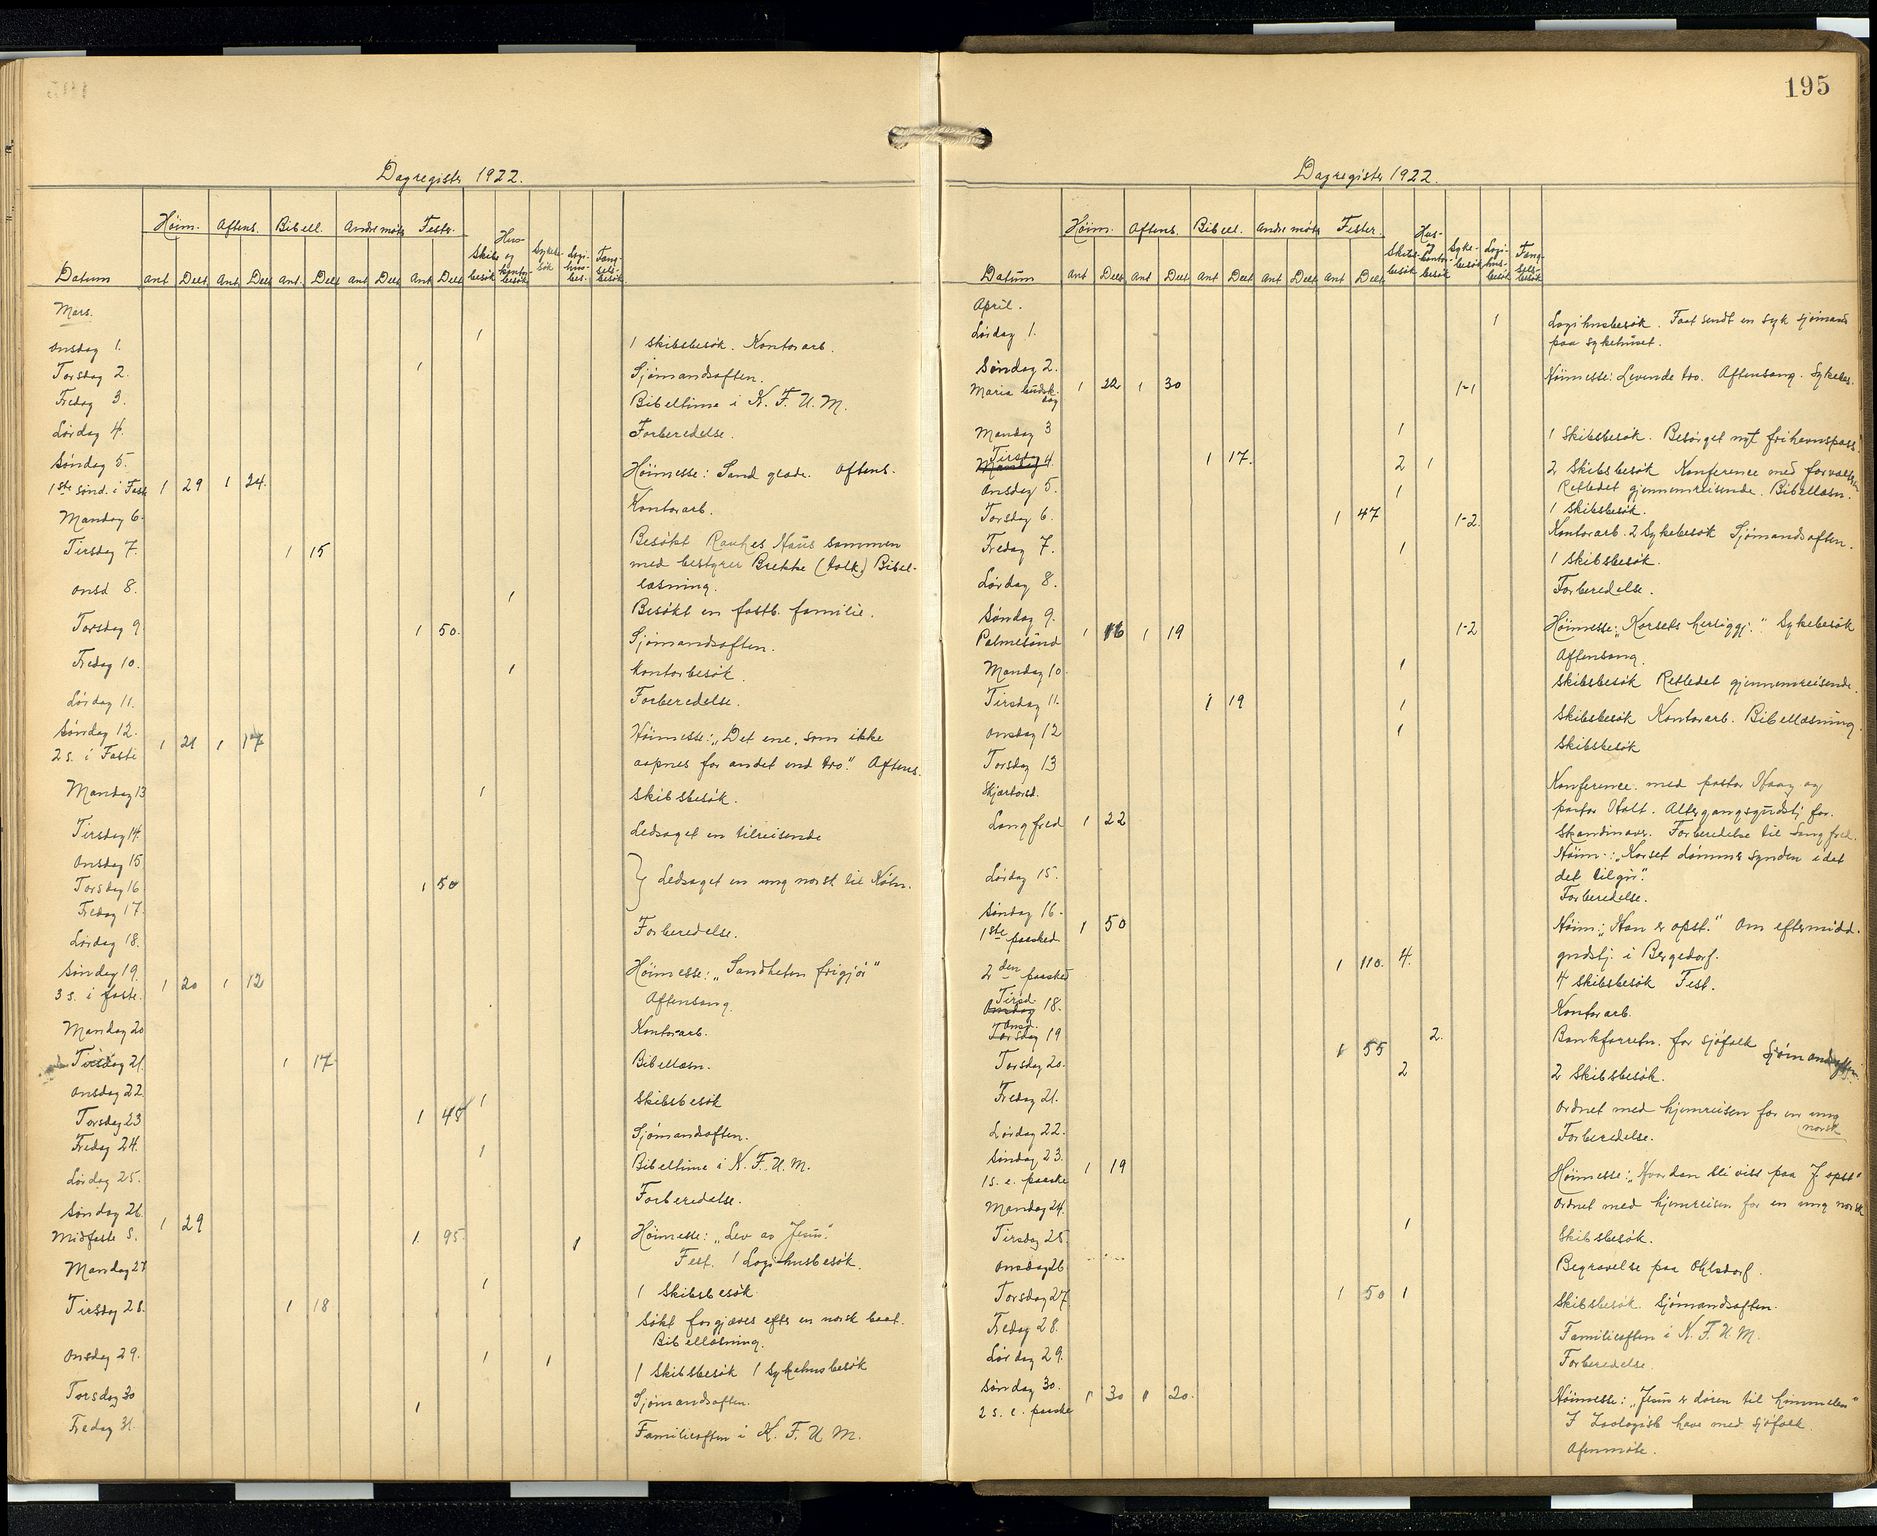 Dagregister 1922.
Høim. Aftens. Bibell. Andre møter Fester.
Skibsbesøk Hus- og kontorbesøk Sykebesøk Logihusbes. Fængselsbesøk
Datum ant Deelt ant. Deelt ant. Deelt ant Deelt ant Deelt
Mars.
Onsdag 1. 1 1 skibsbesøk. Kontorarb.
Torsdag 2. 1 Sjømandsaften.
Fredag 3. Bibeltime i K. F. U. M.
Lørdag 4. Forberedelse.
Søndag 5.
1ste sønd. i Faste 1 29 1 24. Høimesse: Sand glæde. Aftens.
Mandag 6. Kontorarb.
Tirsdag 7. 1 15 Besøkt Rauhes Haus sammen
med bestyrer Brekke (tolk) Bibel-
læsning.
Onsd 8. 1 Besøkt en fastb. familie.
Torsdag 9. 1 50. Sjømandsaften.
Fredag 10. 1 Kontorbesøk.
Lørdag 11. Forberedelse.
Søndag 12.
2 s. i Faste 1 21 1 17 Høimesse: „Det ene, som ikke
aapnes for andet end tro." Aftens.
Mandag 13 1 Skibsbesøk.
Tirsdag 14. Ledsaget en tilreisende
Onsdag 15
Torsdag 16. 1 50 } Ledsaget en ung norsk til Køln.
Fredag 17.
Lørdag 18. Forberedelse.
Søndag 19.
3 s. i faste. 1 20 1 12 Høimesse: „Sandheten frigjør"
Aftensang.
Mandag 20 Kontorarb.
Tirsdag 21. 1 17. Bibellæsn.
Onsdag 22. 1 Skibsbesøk
Torsdag 23 1 48 Sjømandsaften.
Fredag 24. 1 Bibeltime i K. F. U. M.
Lørdag 25. Forberedelse.
Søndag 26.
Midfaste S. 1 29 1. 95. 1 Høimesse: „Lev av Jesus."
Fest. 1 Logihusbesøk.
Mandag 27 1 1 Skibsbesøk
Tirsdag 28. 1 18 Søkt forgjæves efter en norsk baat.
Bibellæsning.
Onsdag 29. 1 1 1 Skibsbesøk 1 Sykehusbesøk
Torsdag 30 1 Sjømandsaften.
Fredag 31. Familieaften i K. F. U M.
195
Dagregister 1922.
Høim. Aftens. Bibell. Andre møter Fester.
Skibsbesøk Hus- & kontorbesøk Sykebesøk Logihusbesøk Fængselsbesøk
Datum ant Deelt ant Deelt ant Deelt ant Deelt ant Deelt
April.
Lørdag 1. 1 Logihusbesøk. Faat sendt en syk sjømand
paa sykehuset.
Søndag 2.
Maria budsk. dag 1 22 1 30 1-1 Høimesse: Levende tro. Aftensang. Sykebes.
Mandag 3 1 1 Skibsbesøk. Besørget nyt frihavnspass.
Tirsdag
Mandag 4. 1 17. 2 1 2 Skibsbesøk Konference med forvalteren
Onsdag 5. 1 Retledet gjennemreisende. Bibellæsn.
1 Skibsbesøk.
Torsdag 6. 1 47 1-2. Kontorarb. 2 Sykebesøk Sjømandsaften.
Fredag 7. 1 1 skibsbesøk.
Lørdag 8. Forberedelse.
Søndag 9.
Palmesønd 1 16 1 19 1-2 Høimesse: „Korsets herliggj." Sykebesøk
Aftensang.
Mandag 10. 1 Skibsbesøk Retledet gjennemreisende.
Tirsdag 11. 1 19 1 Skibsbesøk Kontorarb. Bibellæsning.
Onsdag 12 1 Skibsbesøk
Torsdag 13
Skjærtorsd. Konference med pastor Haag og
pastor Holt. Altergangsgudstj for.
Langfred 1 22 Skandinaver. Forberedelse til Langfred.
Høim.: „Korset dømmer synden idet
det tilgir."
Lørdag 15. Forberedelse.
Søndag 16.
1ste paasked. 1 50 Høim: „Han er opst." Om eftermidd.
gudstj. i Bergedorf.
2den paasked 1 110. 4. 4 Skibsbesøk Fest.
Tirsd.
Onsdag 18. Kontorarb.
Onsd.
Torsdag 19 2. Bankforretn. for sjøfolk Sjømandsaften
Torsdag 20. 1 55 2 2 Skibsbesøk.
Fredag 21. Ordnet med hjemreisen for en ung norsk
Lørdag 22. Forberedelse.
Søndag 23.
1 s. e. paaske 1 19 Høimesse: „Hvordan bli viss paa J. opst"
Mandag 24. Ordnet med hjemreisen for en ung norsk
Tirsdag 25. 1 Skibsbesøk.
Onsdag 26. Begravelse paa Ohlsdorf.
Torsdag 27. 1 50 1 Skibsbesøk. Sjømandsaften.
Fredag 28. Familieaften i K. F. U. M.
Lørdag 29. Forberedelse.
Søndag 30.
2 s. e. paaske 1 30 1 20. Høimesse: „Jesus er døren til himmelen"
I Zoologisk have med sjøfolk.
Aftenmøte.